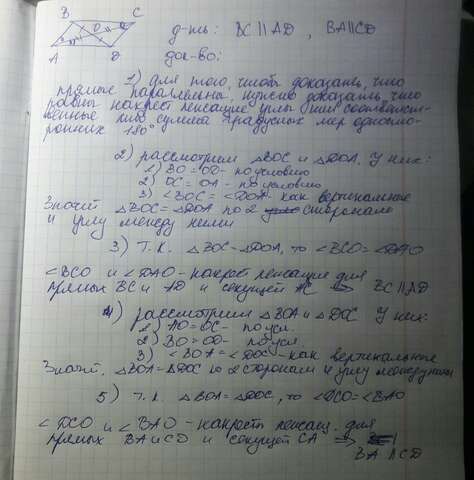 B C
O
A D
д-ть: BC || AD, BA || CD
док-во:
1) для того, чтобы доказать, что
прямые параллельны, нужно доказать, что
равны накрест лежащие углы или соответствен-
ные либо сумма градусных мер одност-
ронних 180°
2) рассмотрим △BOC и △DOA. У них:
1) BO = OD - по условию
2) OC = OA - по условию
3) ∠BOC = ∠DOA - как вертикальные
Значит △BOC = △DOA по 2 сторонам
и углу между ними
3) Т.к. △BOC = △DOA, то ∠BCO = ∠DAO
∠BCO и ∠DAO - накрест лежащие для
прямых BC и AD и секущей AC ⇒ BC || AD
4) рассмотрим △BOA и △DOC У них:
1) AO = OC - по усл.
2) BO = OD - по усл.
3) ∠BOA = ∠DOC - как вертикальные
Значит, △BOA = △DOC по 2 сторонам и углу между ними
5) Т.к. △BOA = △DOC, то ∠DCO = ∠BAO
∠DCO и ∠BAO - накрест лежащ. для
прямых BA и CD и секущей CA ⇒
BA || CD